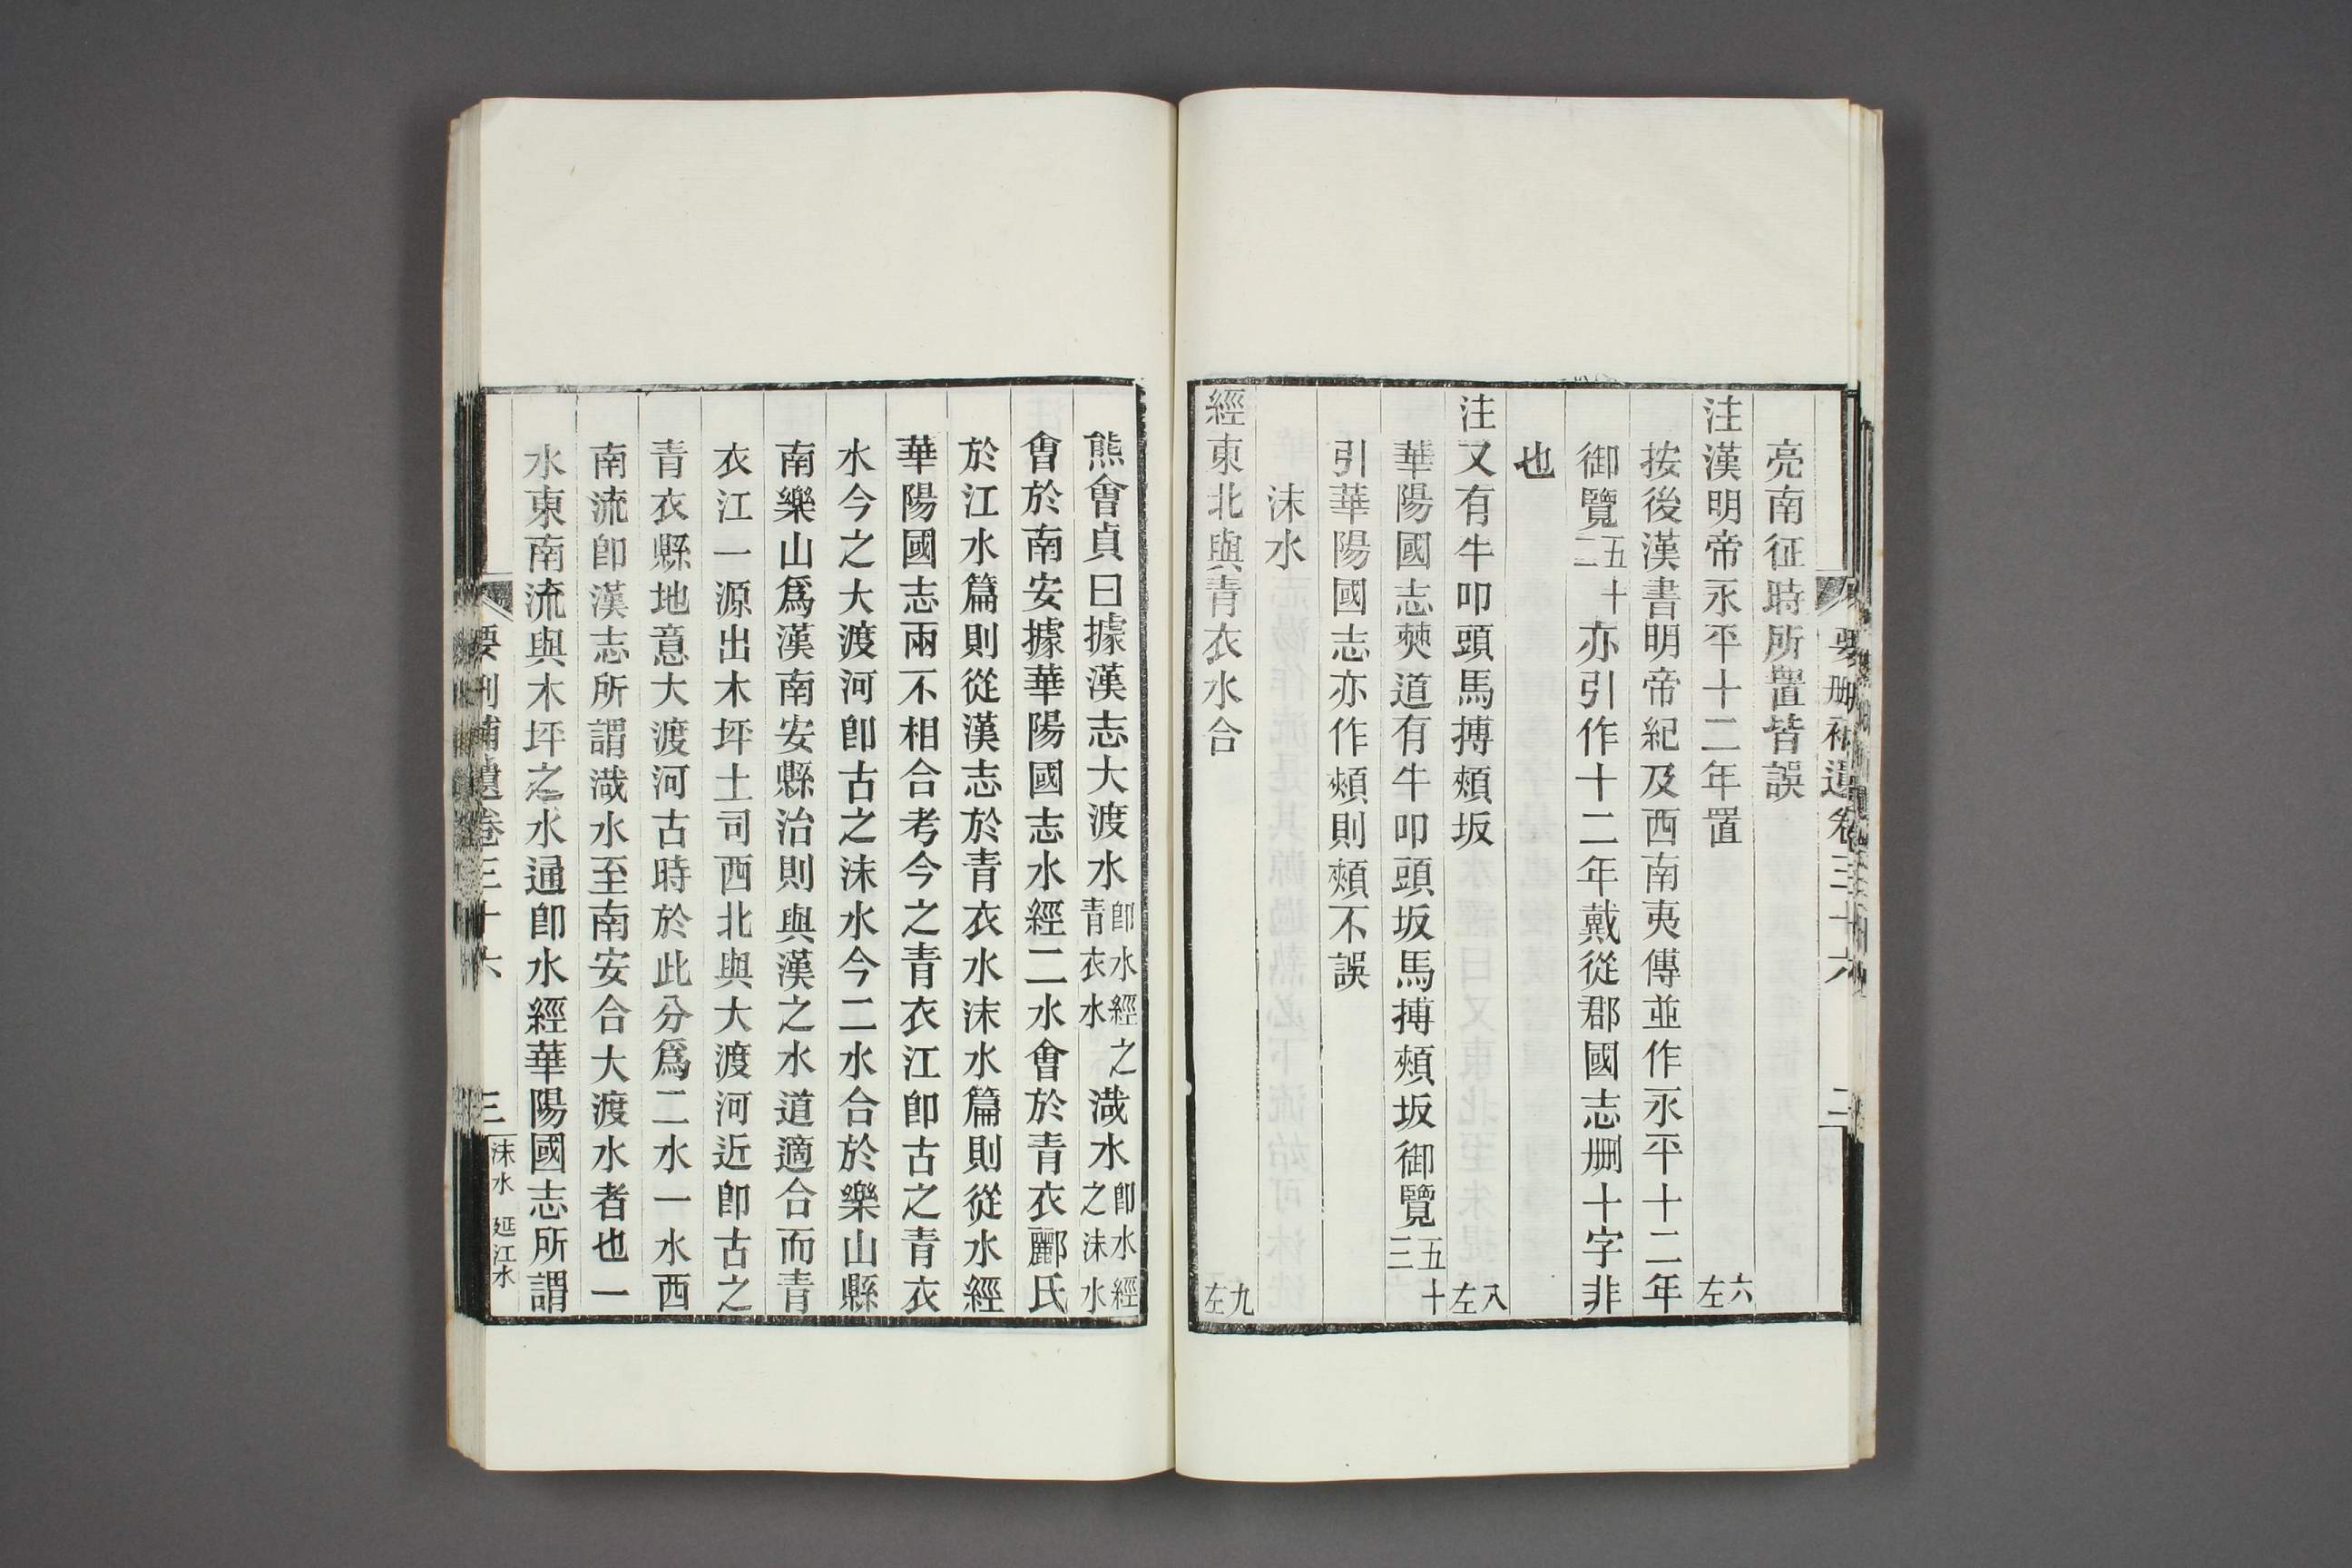 要刪補遺卷三十六 二
亮南征時所置皆誤
注漢明帝永平十二年置 六左
按後漢書明帝紀及西南夷傳並作永平十二年
御覽五十二亦引作十二年戴從郡國志刪十字非
也
注又有牛叩頭馬搏頰坂 八左
華陽國志僰道有牛叩頭坂馬搏頰坂御覽五十三
引華陽國志亦作頰則頰不誤
沫水
經東北與青衣水合 九左
熊會貞曰據漢志大渡水即水經之青衣水渽水即水經之沫水
會於南安據華陽國志水經二水會於青衣酈氏
於江水篇則從漢志於青衣水沫水篇則從水經
華陽國志兩不相合考今之青衣江即古之青衣
水今之大渡河即古之沫水今二水合於樂山縣
南樂山爲漢南安縣治則與漢之水道適合而青
衣江一源出木坪土司西北與大渡河近即古之
青衣縣地意大渡河古時於此分爲二水一水西
南流即漢志所謂渽水至南安合大渡水者也一
水東南流與木坪之水通即水經華陽國志所謂
要刪補遺卷三十六 三 沫水 延江水